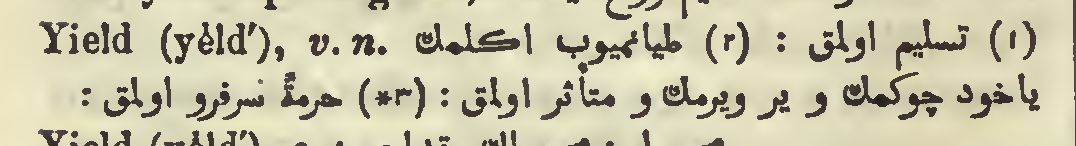 Yield (yèld′), v. n. (۱) تسليم اولمق : (۲) طيانميوب اكلمك
ياخود چوكمك و ير ويرمك و متأثر اولمق : (*۳) حرمةً سرفرو اولمق :